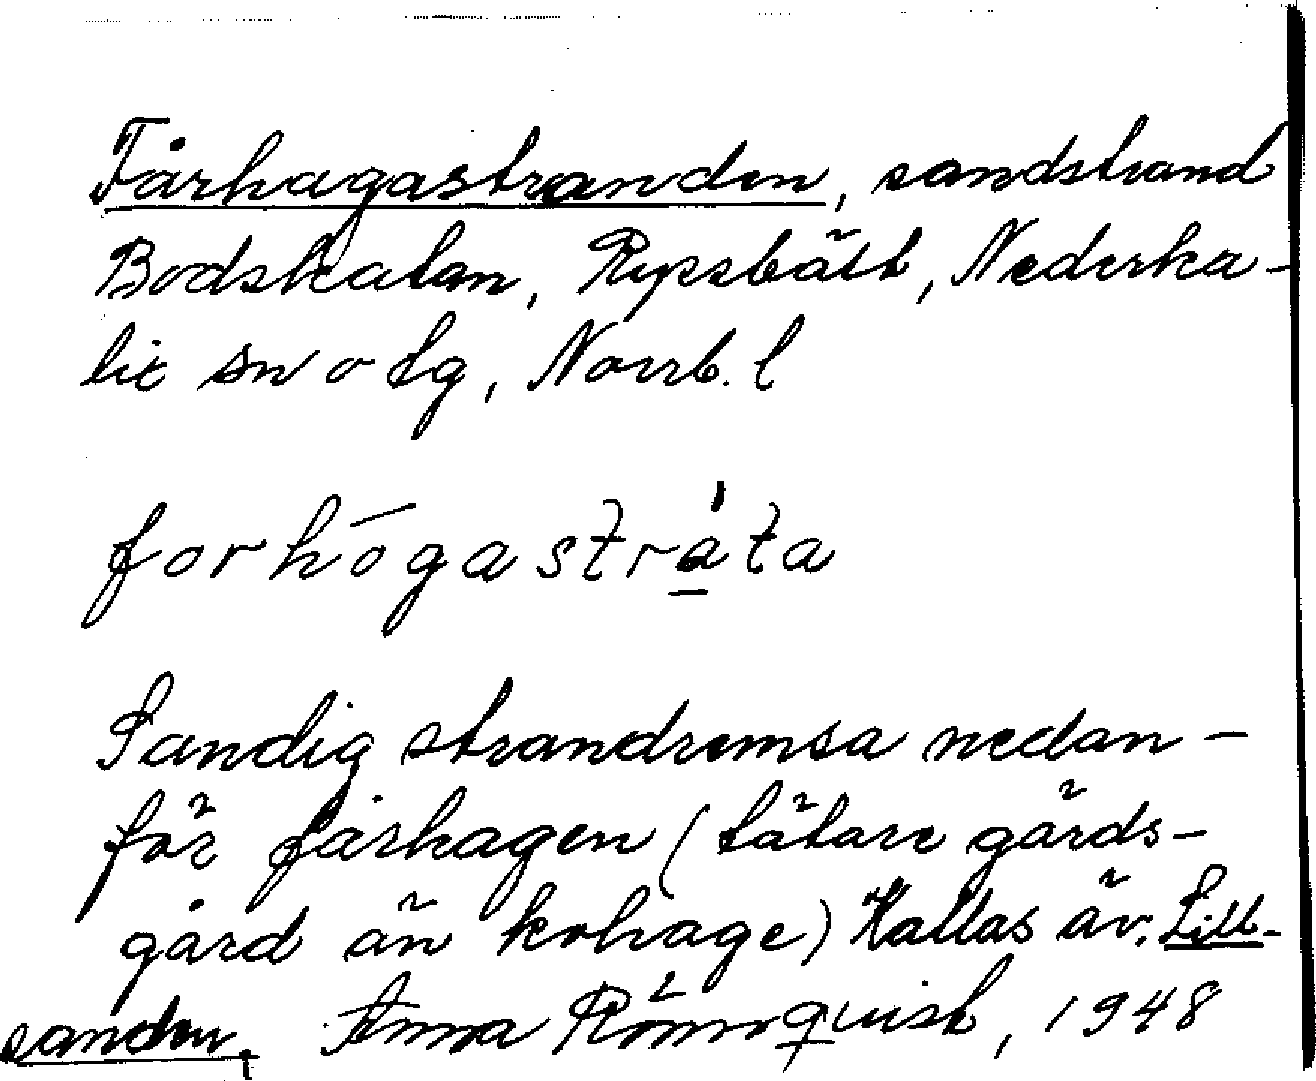 Fårhagastranden, sandstrand
Bodskatan, Ryssbält, Nederka-
lix sn o tg, Norrb. l
forhōgastráta
Sandig strandremsa nedan-
för fårhagen (tätare gärds-
gård än kohage) Kallas äv. Lill-
sanden. Anna Rönnqvist, 1948